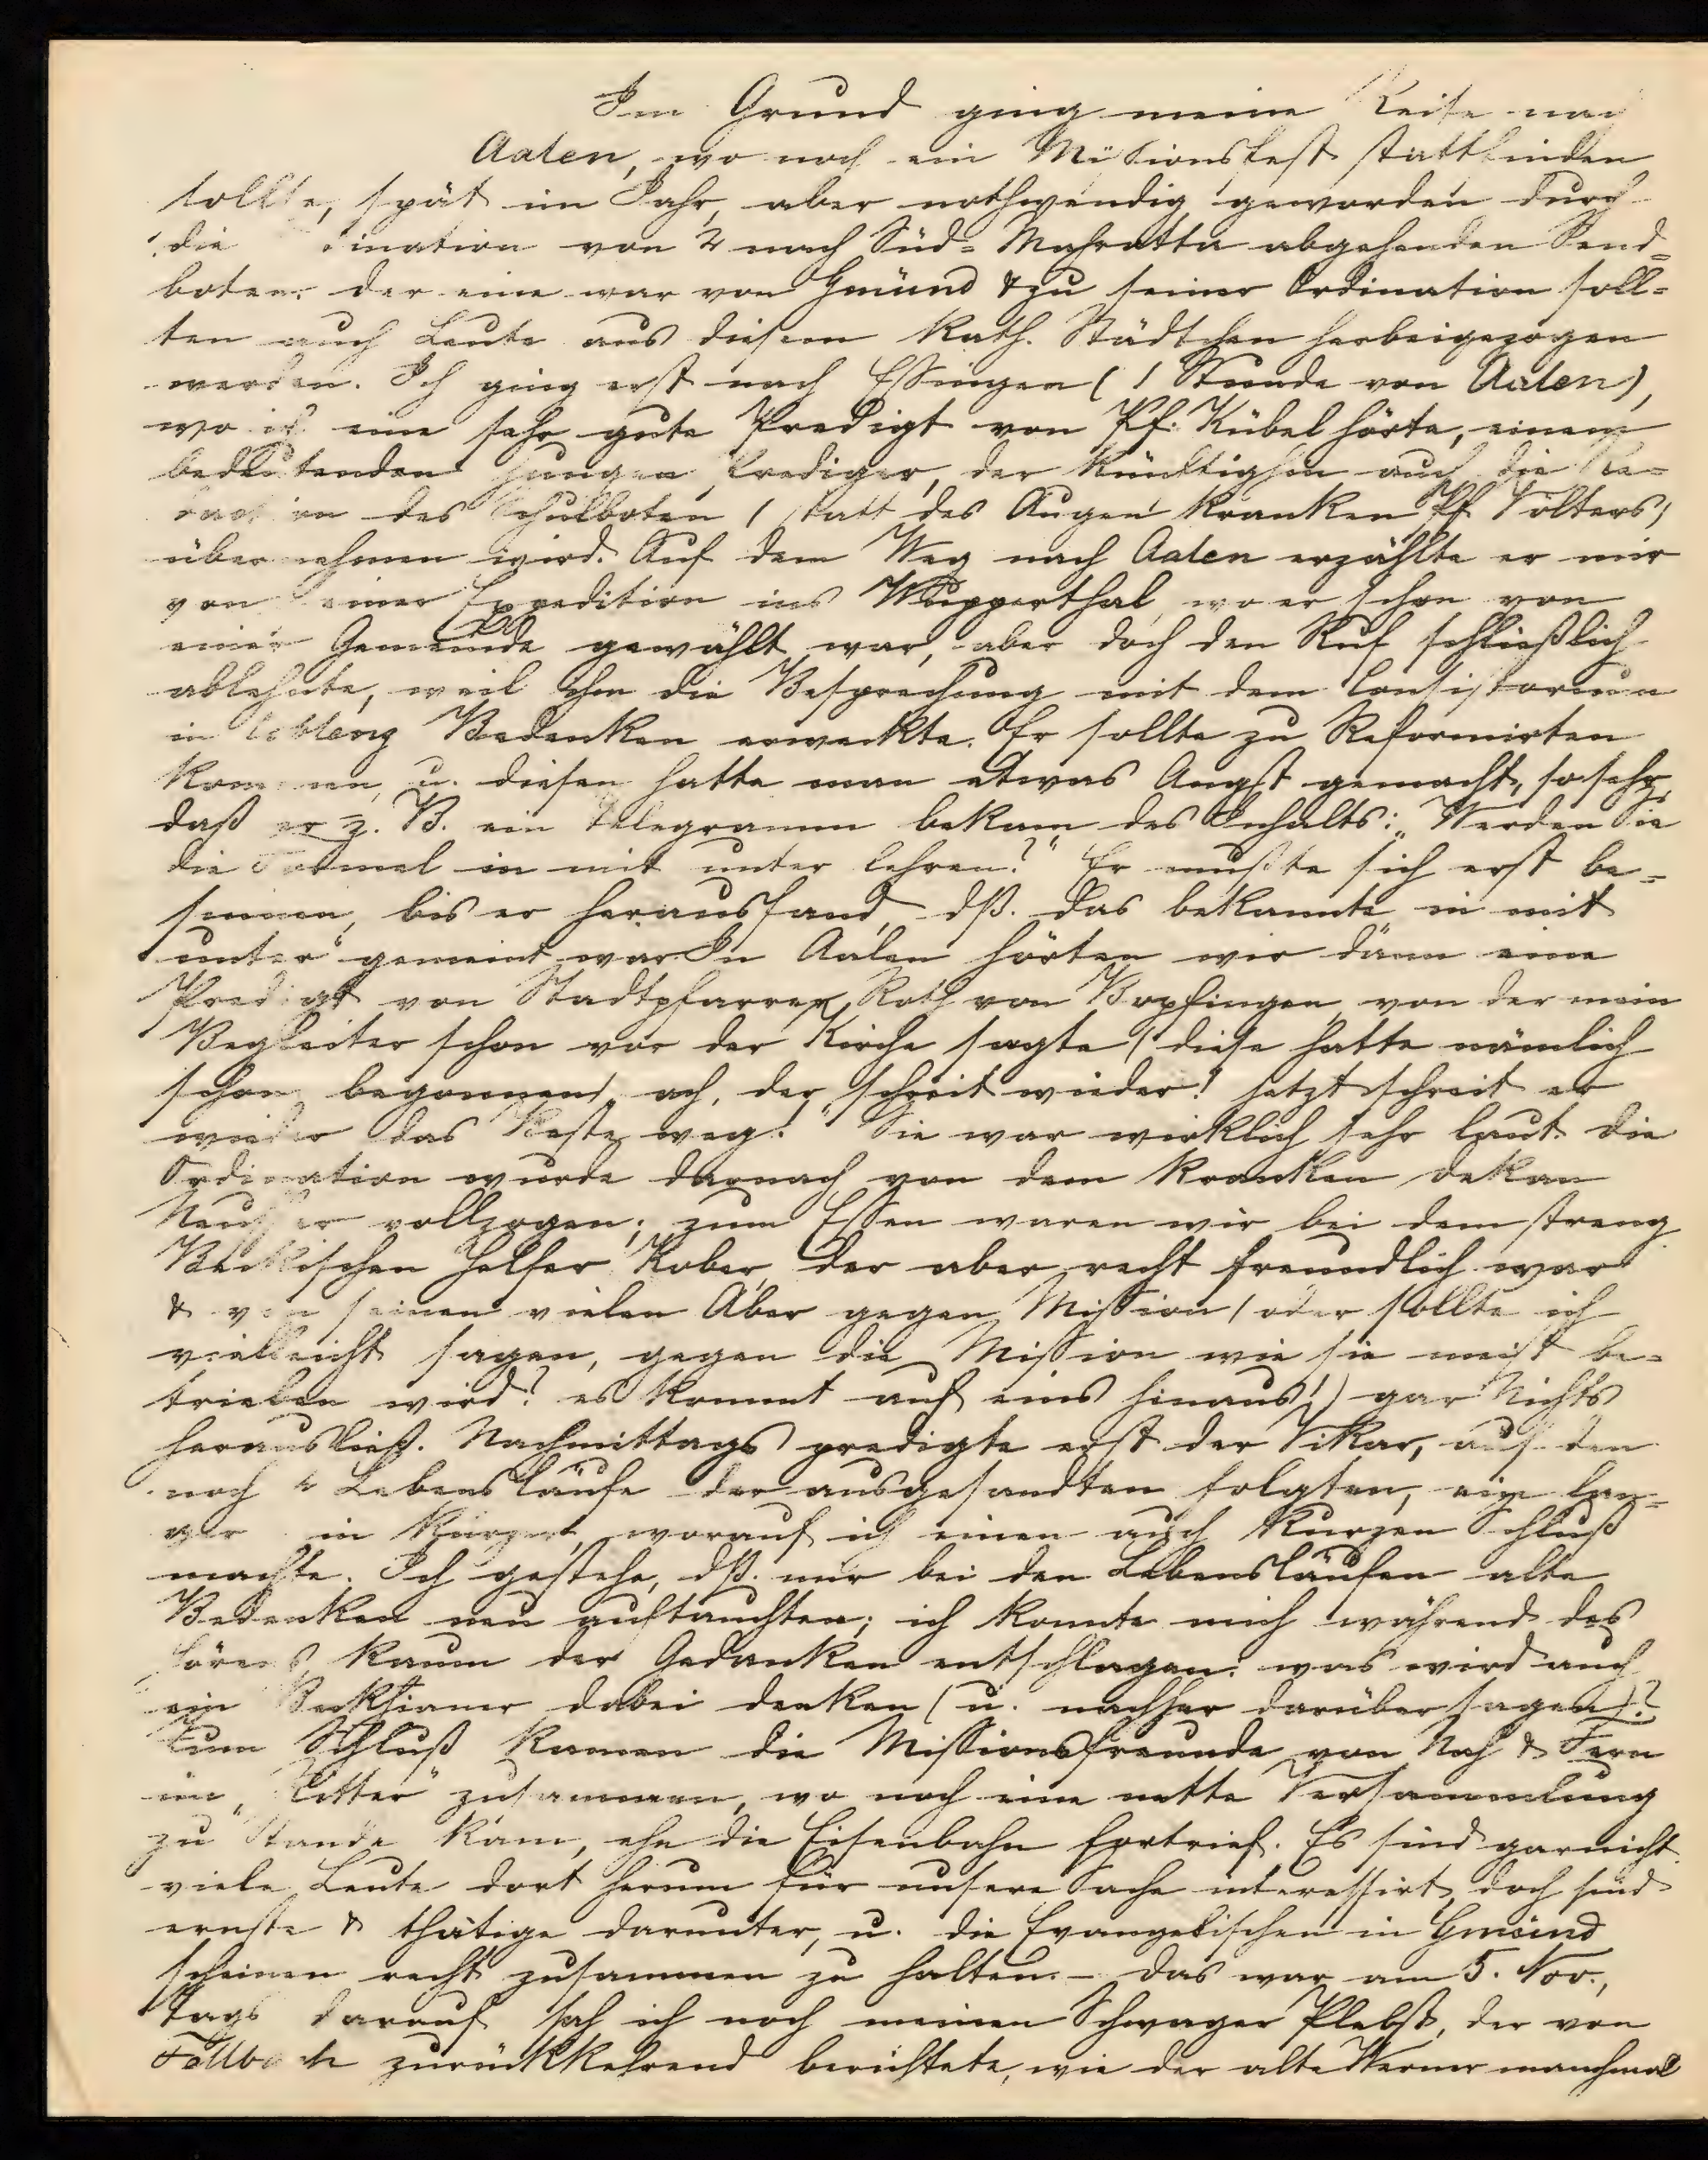 Im Grund ging meine Reise nach
Aalen, wo noch ein Missionsfest stattfinden
sollte, spät im Jahr, aber nothwendig geworden durch
die ination von 2 nach Süd-Mahratta abgehenden Send-
boten. der eine war von Gmünd & zu seiner Ordination soll-
ten auch Leute aus diesem kath. Städtchen herbeigezogen
werden. Ich ging erst nach Essingen (1 Stunde von Aalen),
wo ich eine sehr gute Predigt von Pf. Kübel hörte, einem
bedeutenden jungen Prediger, der künftighin auch die Re-
daction des Schulboten (statt des Augen kranken Pf Völters)
übernehmen wird. Auf dem Weg nach Aalen erzählte er mir
von einer Expedition ins Wupperthal, wo er schon von
einer Gemeinde gewählt war, aber doch den Ruf schließlich
ablehnte, weil ihm die Besprechung mit dem Consistorium
in Coblenz Bedenken erweckte. Er sollte zu Reformirten
kommen, u. diesen hatte man etwas Angst gemacht, so sehr,
daß er z. B. ein Telegramm bekam des Inhalts: „Werden Sie
die Formel in mit unter lehren?" Er mußte sich erst be-
sinnen, bis er herausfand, dß. das bekannte in mit
unter" gemeint war. In Aalen hörten wir dann eine
Predigt von Stadtpfarrer Roth von Bopfingen, von der mein
Begleiter schon vor der Kirche sagte (diese hatte nämlich
schon begonnen) „ach, der schreit wieder! jetzt schreit er
wieder das Beste weg." Sie war wirklich sehr laut. die
Ordination wurde darnach von dem kranken Dekan
vollzogen; zum Essen waren wir bei dem streng
Beckischen Helfer Kober, der aber recht freundlich war
& von seinen vielen Aber gegen Mission (oder sollte ich
vielleicht sagen, gegen die Mission wie sie meist be-
trieben wird? es kommt auf eins hinaus!) gar Nichts
herausließ. Nachmittags predigte erst der Vikar, auf den
noch 2 Lebensläufe der ausgesandten folgten, ein lan-
ger in kürzer, worauf ich einen auch kurzen Schluß
machte. Ich gestehe, dß. mir bei den Lebensläufen alte
Bedenken neu auftauchten; ich konnte mich während des
Hörens kaum der Gedanken entschlagen: was wird auch
ein Beckhianer dabei denken (u. nachher darüber sagen)?
Zum Schluß kamen die Missionsfreunde von Nah & Fern
im „Ritter" zusammen, wo noch eine nette Versammlung
zu Stande kam, ehe die Eisenbahn fortrief. Es sind gar nicht
viele Leute dort herum für unsere Sache interessirt, doch sind
ernste & thätige darunter, u. die Evangelischen in Gmünd
scheinen recht zusammen zu halten. - das war am 5. Nov.,
Tags darauf sah ich noch meinen Schwager Plebst, der von
Fellbach zurückkehrend berichtete, wie der alte Werner manchmal